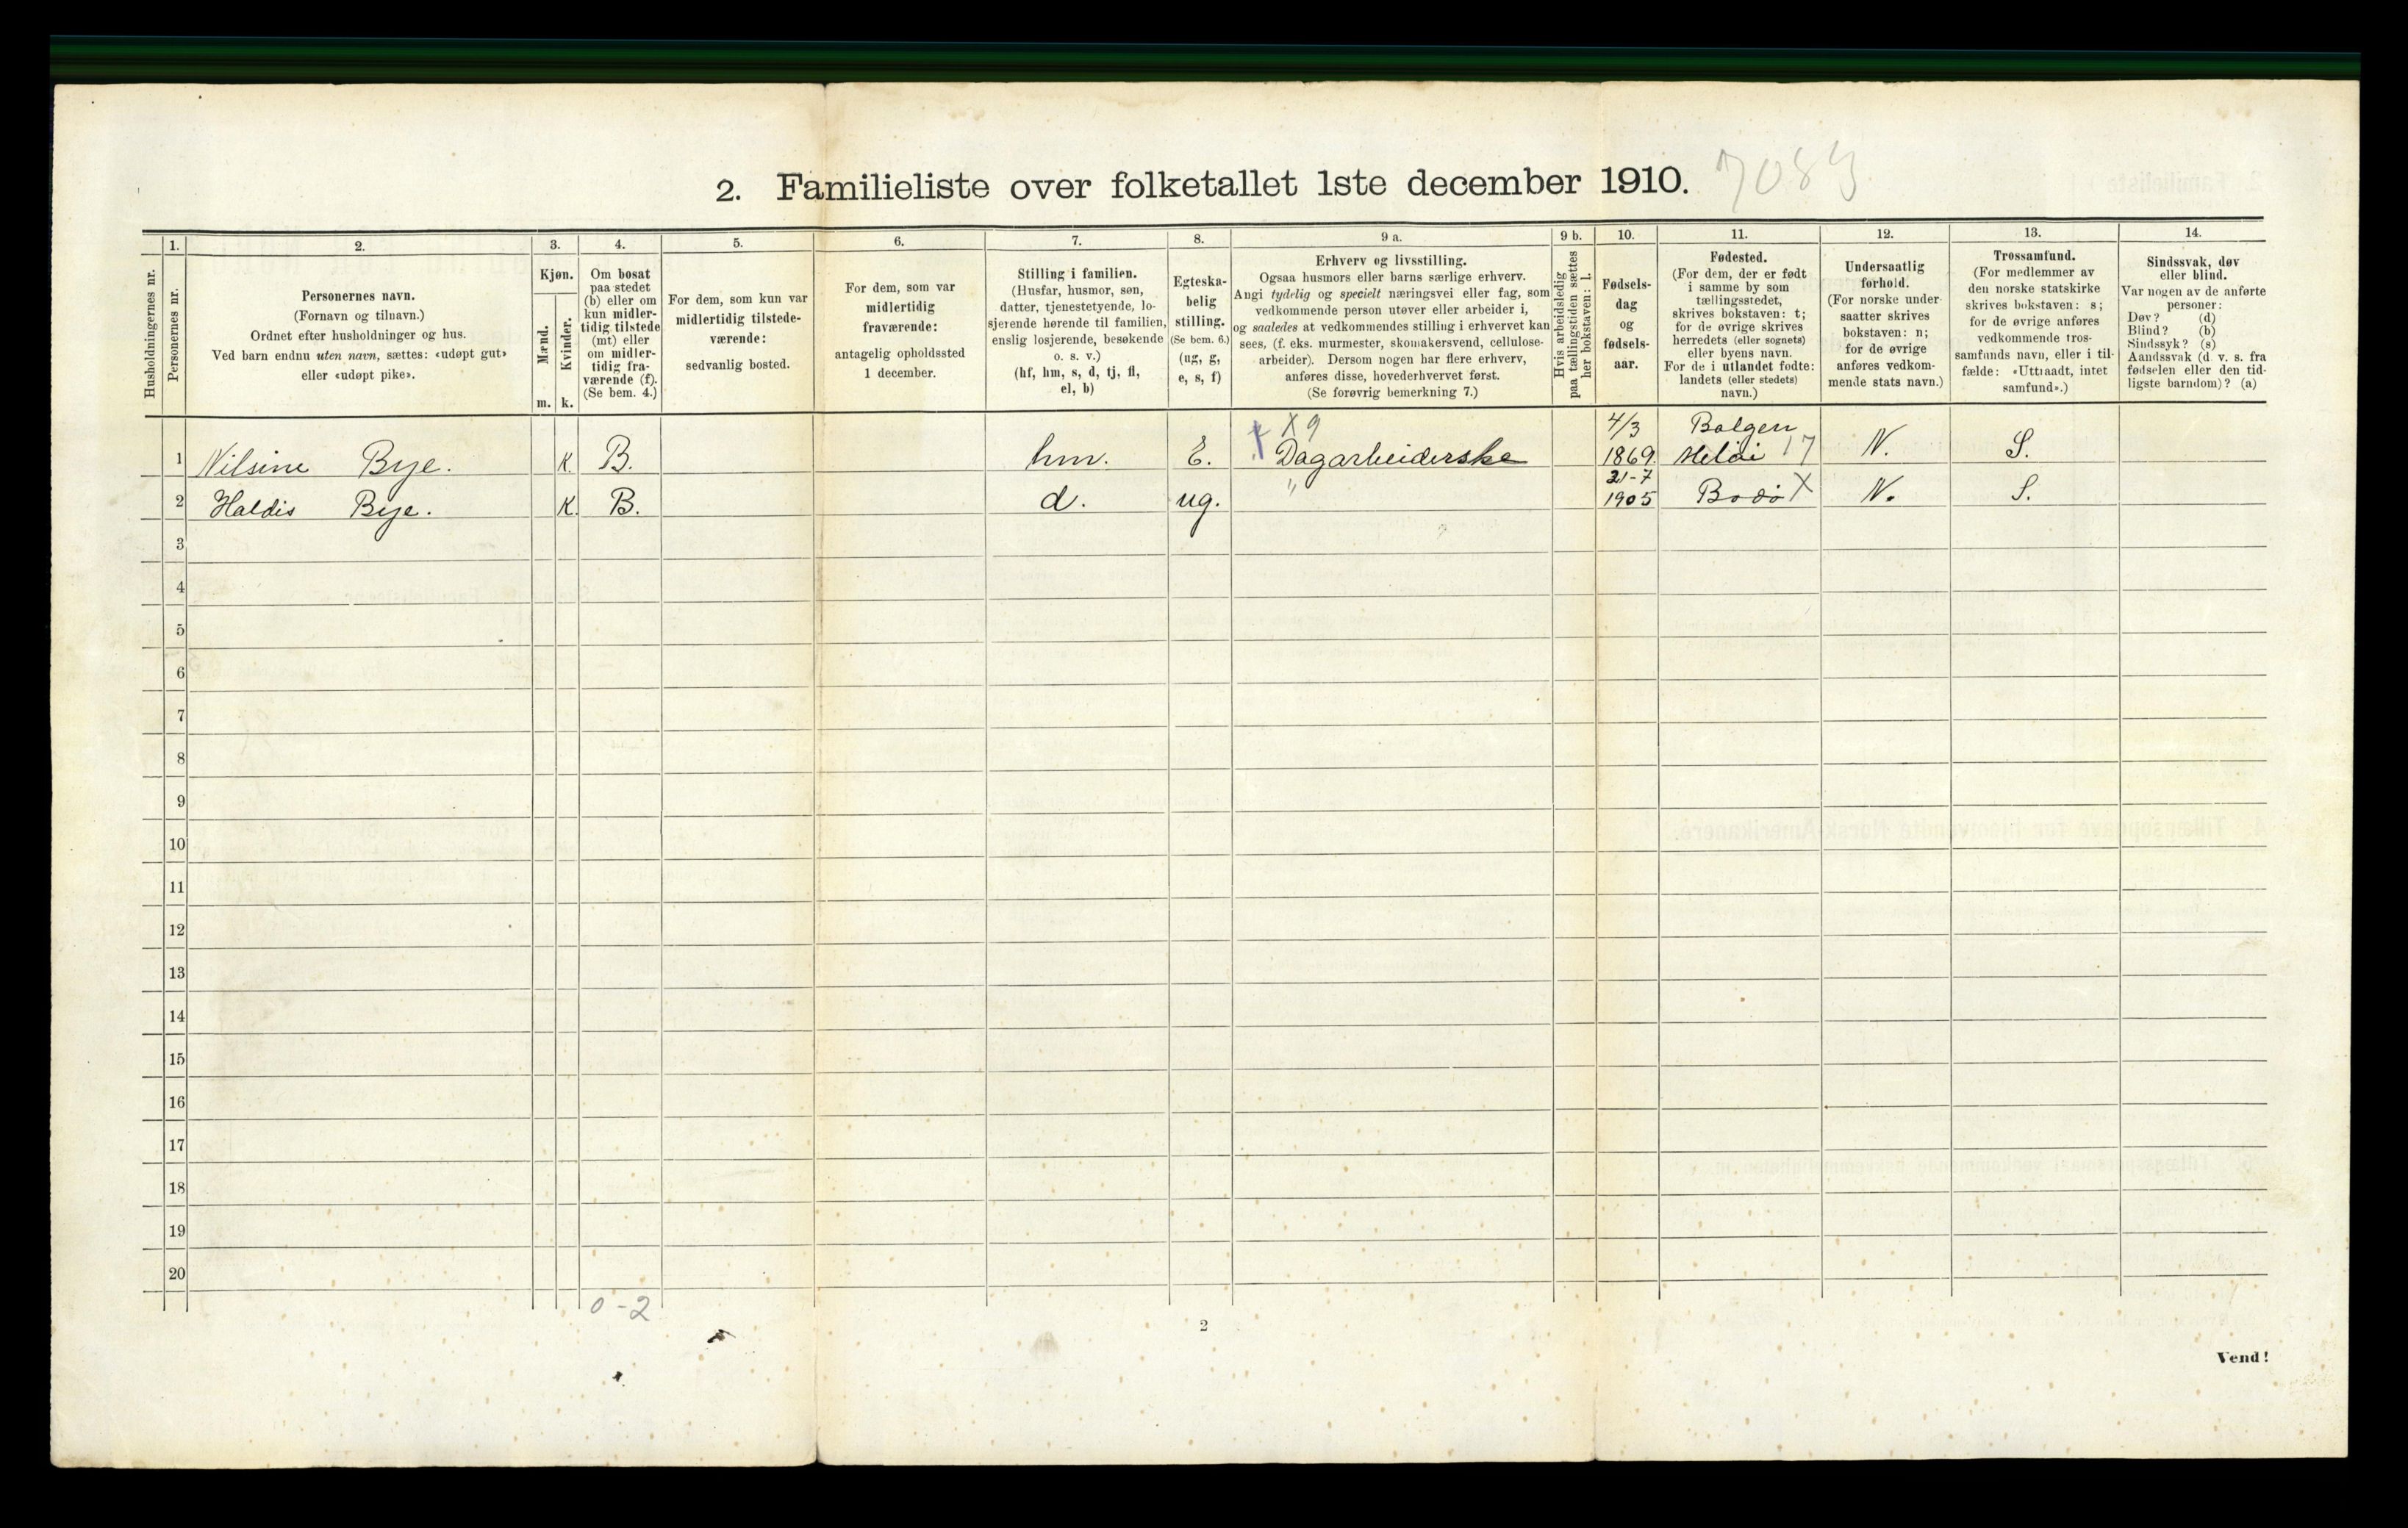 2. Familieliste over folketallet 1ste december 1910. 7083
Husholdningernes nr.
1.
Personernes nr.
2.
Personernes navn.
(Fornavn og tilnavn.)
Ordnet efter husholdninger og hus.
Ved barn endnu uten navn, sættes: «udøpt gut»
eller «udøpt pike».
3.
Kjøn.
Mænd.
Kvinder.
m. k.
4.
Om bosat
paa stedet
(b) eller om
kun midler-
tidig tilstede
(mt) eller
om midler-
tidig fra-
værende (f).
(Se bem. 4.)
5.
For dem, som kun var
midlertidig tilstede-
værende:
sedvanlig bosted.
6.
For dem, som var
midlertidig
fraværende:
antagelig opholdssted
1 december.
7.
Stilling i familien.
(Husfar, husmor, søn,
datter, tjenestetyende, lo-
sjerende hørende til familien,
enslig losjerende, besøkende
o. s. v.)
(hf, hm, s, d, tj, fl,
el, b)
8.
Egteska-
belig
stilling.
(Se bem. 6.)
(ug, g,
e, s, f)
9 a.
Erhverv og livsstilling.
Ogsaa husmors eller barns særlige erhverv.
Angi tydelig og specielt næringsvei eller fag, som
vedkommende person utøver eller arbeider i,
og saaledes at vedkommendes stilling i erhvervet kan
sees, (f. eks. murmester, skomakersvend, cellulose-
arbeider). Dersom nogen har flere erhverv,
anføres disse, hovederhvervet først.
(Se forøvrig bemerkning 7.)
9 b.
Hvis arbeidsledig
paa tællingstiden sættes
her bokstaven: l.
10.
Fødsels-
dag
og
fødsels-
aar.
11.
Fødested.
(For dem, der er født
i samme by som
tællingsstedet,
skrives bokstaven: t;
for de øvrige skrives
herredets (eller sognets)
eller byens navn.
For de i utlandet fødte:
landets (eller stedets)
navn.)
12.
Undersaatlig
forhold.
(For norske under-
saatter skrives
bokstaven: n;
for de øvrige
anføres vedkom-
mende stats navn.)
13.
Trossamfund.
(For medlemmer av
den norske statskirke
skrives bokstaven: s;
for de øvrige anføres
vedkommende tros-
samfunds navn, eller i til-
fælde: «Uttraadt, intet
samfund».)
14.
Sindssvak, døv
eller blind.
Var nogen av de anførte
personer:
Døv? (d)
Blind? (b)
Sindssyk? (s)
Aandssvak (d. v. s. fra
fødselen eller den tid-
ligste barndom)? (a)
X 9 4/3 Bolgen
1 Nilsine Bye. K. B. hm. E. Dagarbeiderske 1869. Meløi 17 N. S.
21-7
2 Haldis Bye. K. B. d. ug. " 1905 Bodø X N. S.
3
4
5
6
7
8
9
10
11
12
13
14
15
16
17
18
19
20
0-2
2
Vend!